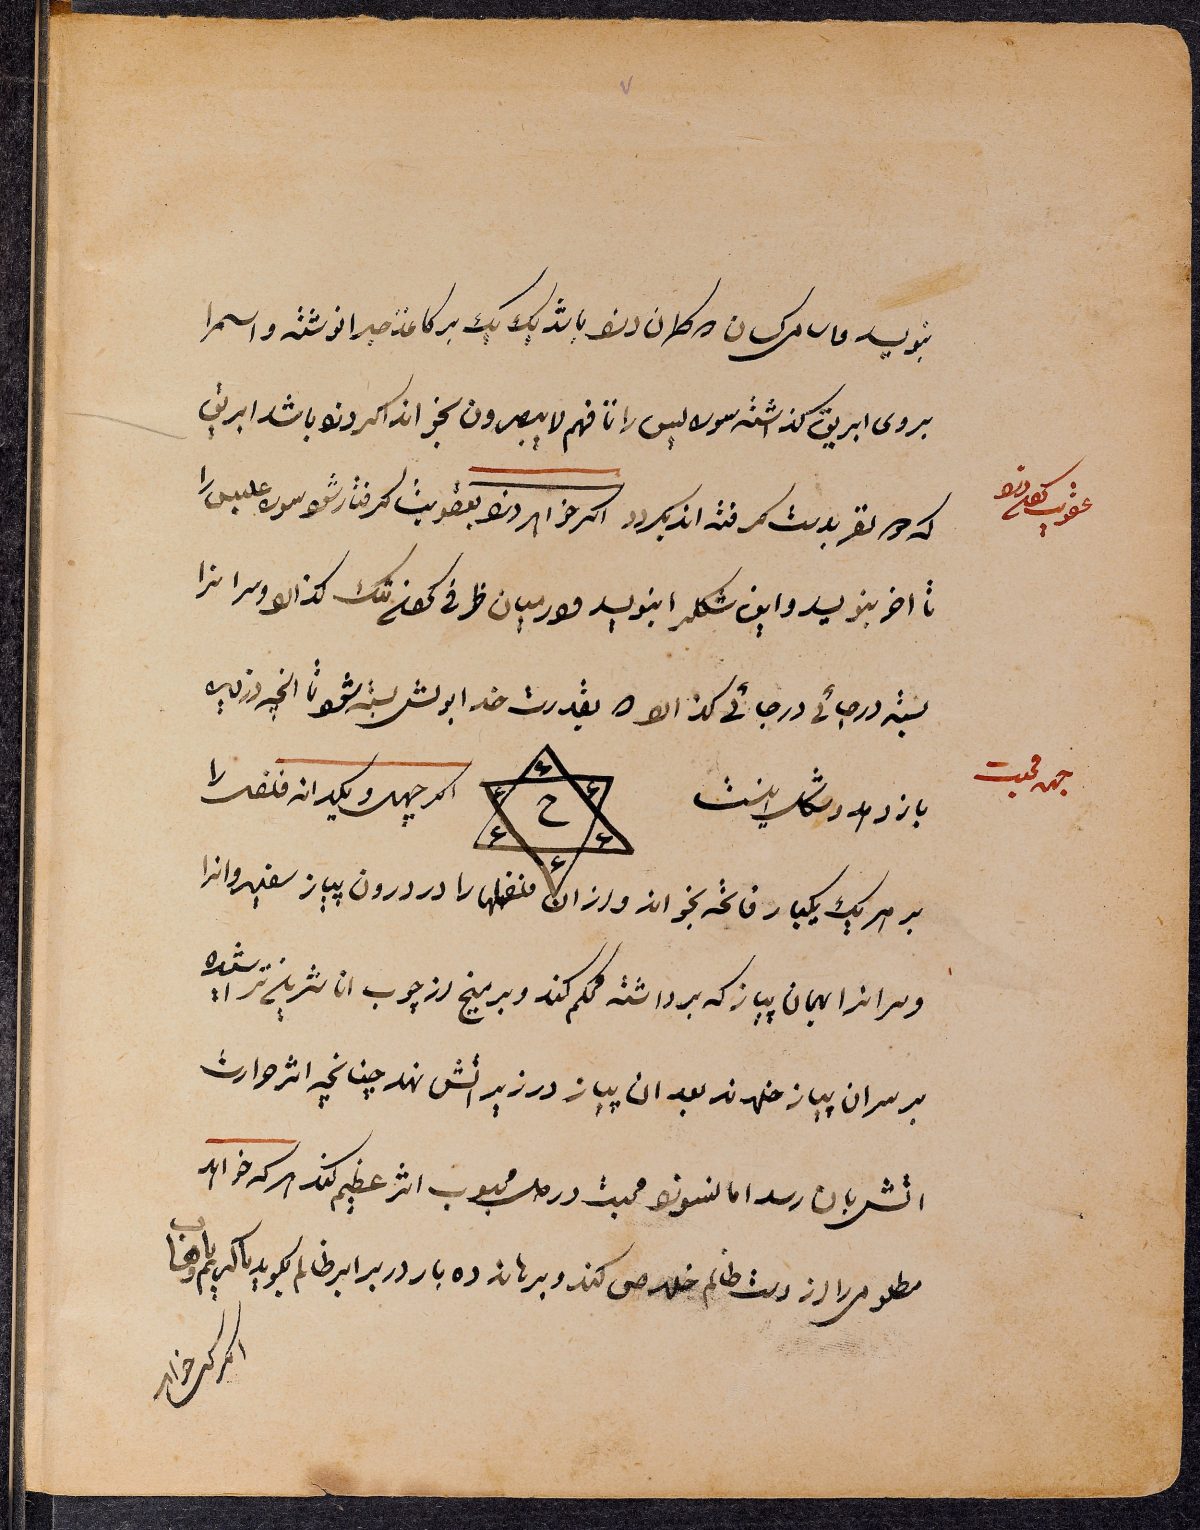 ۷
بنویسد و اسامی کسان که گمان دزد باشد یک یک بر کاغذ جدا نوشته و اسم را
بروی ابریق گذاشته سوره یس را تا فهم لا یبصرون بخواند اکر دزد باشد ابریق
که دو نفر بدست گرفته اند بگردد اکر خواهد دزد بعقوبت گرفتار شود سوره عبس را
تا اخر بنویسد و این شکل را بنویسد و در میان ظرفی تنک گذارد و سر انرا
بسته در جائی گذارد بقدرت خدا بولش بسته شود تا انچه دزدیده
باز دهد و شکل اینست
ح
۶ ۶ ۶ ۶ ۶ ۶
اکر چهل و یکدانه فلفل را
بر هر یک یکبار فاتحه بخواند و از ان فلفلها را در درون پیاز سفید و انرا
و سر انرا بهمان پیاز که برداشته محکم کند و بر میخ از چوب انار تراشیده
بر سر ان پیاز بعد ان پیاز در زیر اتش نهد چنانچه اثر حرارت
اتش بان رسد محبت در دل محبوب اثر عظیم کند هر که خواهد
مظلومی را از دست ظالم خلاص کند و برهاند ده بار در برابر ظالم بگوید
اکر کسی خواهد
عقوبت دزد
جهة محبت